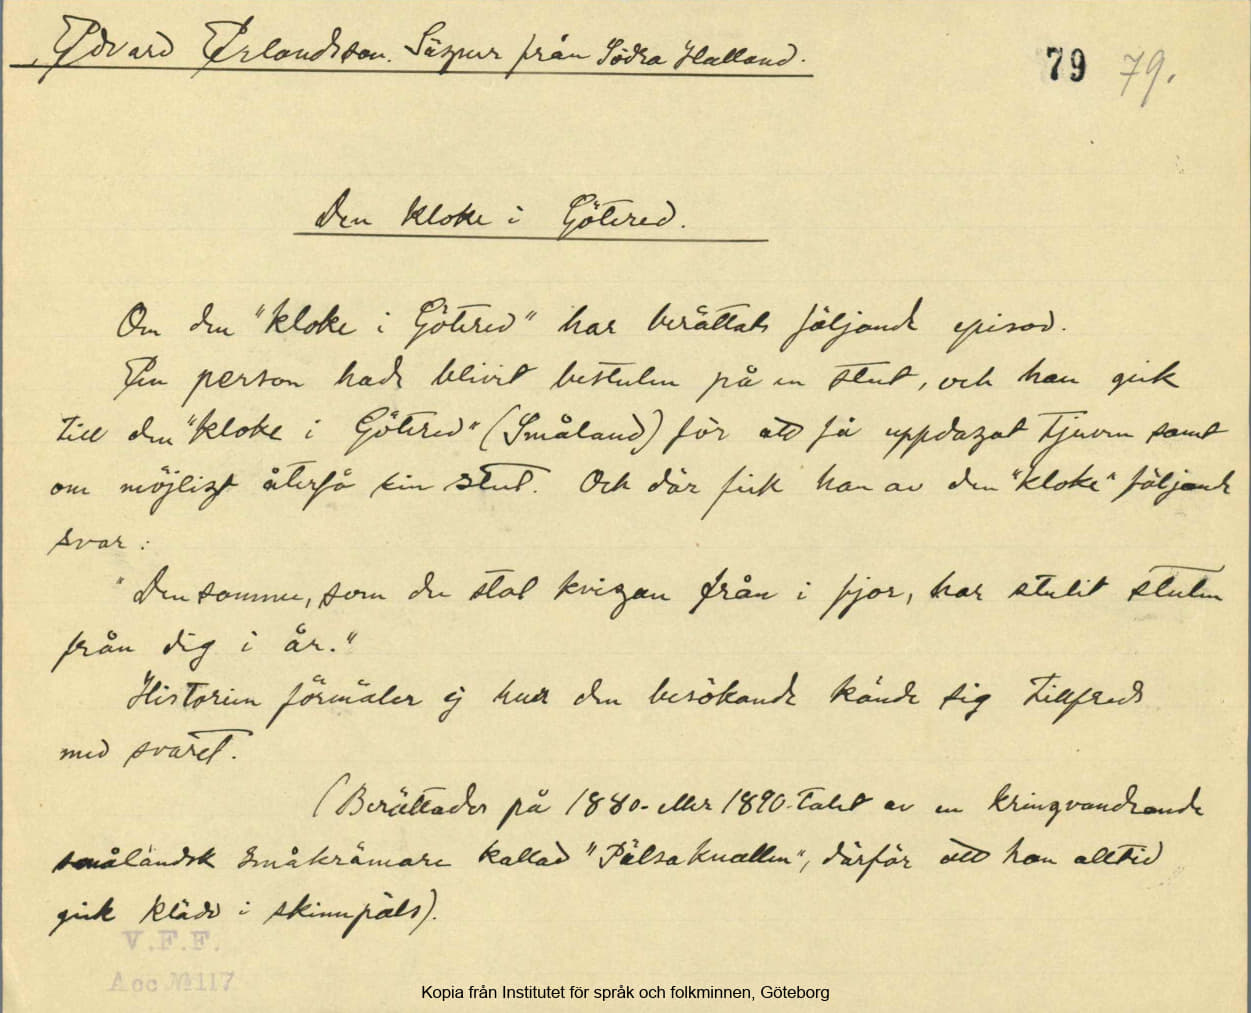 Edvard Erlandsson. Sägner från Södra Halland.
79 79.
Den kloke i Götered.
Om den "kloke i Götered" har berättats följande episod.
En person hade blivit bestulen på en stut, och han gick
till den "kloke i Götered" (Småland) för att få uppdagat tjuven samt
om möjligt återfå sin stut. Och där fick han av den "kloke" följande
svar:
"Den samme, som du stal kvigan från i fjor, har stulit stuten
från dig i år."
Historien förmäler ej hur den besökande kände sig tillfreds
med svaret.
(Berättades på 1880- eller 1890-talet av en kringvandrande
småländsk småkrämare kallad "Pälsaknallen", därför att han alltid
gick klädd i skinnpäls).
V.F.F.
Acc №117
Kopia från Institutet för språk och folkminnen, Göteborg